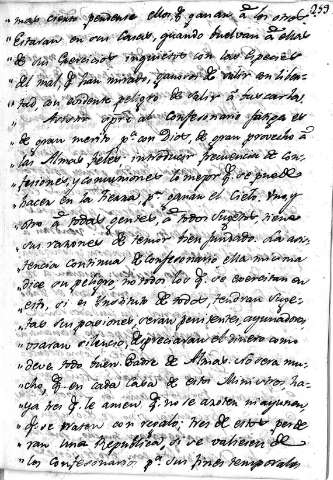 253
mas ciento pendense ellos, q̃ ganan à los otros.
Estaran en sus Casas, quando buelvan à ellas
" de sus Exercicios inquietos con las Especies
" del mal q̃ han mirado, ganosos de salir con liber-
" tad con ardente peligro de salir à buscarlas.
" Assistir spre al Confesonario fatiga es
" de gran merito pª con Dios, de gran provecho à
" las Almas fieles: introducir frecuencia de Con-
" fesiones, y comuniones lo mejor q̃ se puede
" hacer en la tierra pª ganar el Cielo. Uno y
" otro à todas gentes, à todos Sugetos, tiene
" sus razones de temor bien fundado. La asis-
" tencia continua de Confesonario ella misma
" dice su peligro: no todos los q̃ se exercitan en
" esto, si es Instituto de todos, tendran suge-
" tas sus pasiones, seran penitentes, ayunadores,
" usaran silencio, despreciaran el dinero como
" deve todo buen Padre de Almas. No sera mu-
" cho, q̃ en cada Casa de estos Ministros ha-
" ya tres q̃ le amen, q̃ no se azoten ni ayunen,
" q̃ se traten con regalo; tres de estos perde-
" ran una Republica, si se valiesen de
" los Confesonarios pª sus fines temporales